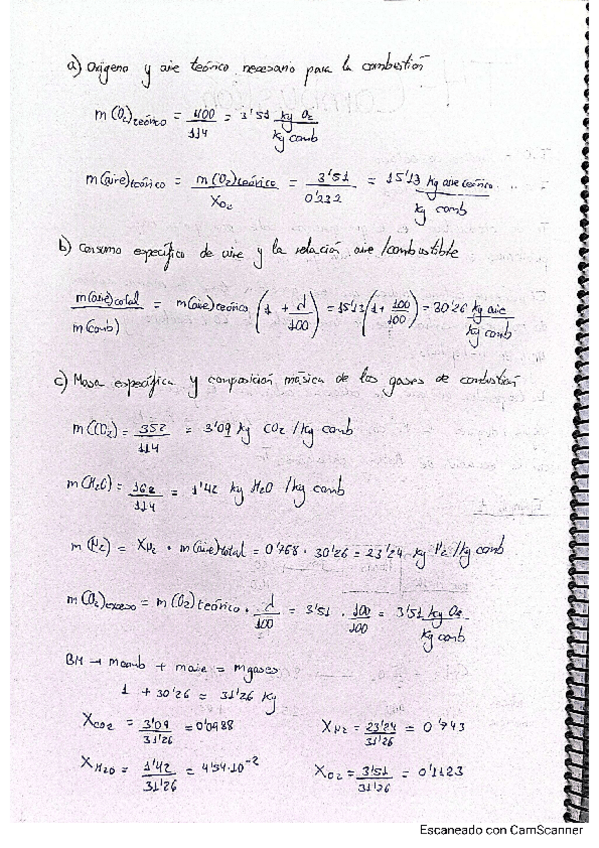 a) Oxígeno y aire teórico necesario para la combustión
m(O₂)teórico = 400/114 = 3'51 kg O₂/kg comb
m(aire)teórico = m(O₂)teórico/XO₂ = 3'51/0'232 = 15'13 kg aire teórico/kg comb
b) Consumo específico de aire y la relación aire/combustible
m(aire)total/m(comb) = m(aire)teórico (1 + d/100) = 15'13(1 + 100/100) = 30'26 kg aire/kg comb
c) Masa específica y composición másica de los gases de combustión
m(CO₂) = 352/114 = 3'09 kg CO₂/kg comb
m(H₂O) = 162/114 = 1'42 kg H₂O/kg comb
m(N₂) = XN₂ · m(aire)total = 0'768 · 30'26 = 23'24 kg N₂/kg comb
m(O₂)exceso = m(O₂)teórico · d/100 = 3'51 · 100/100 = 3'51 kg O₂/kg comb
BM → mcomb + maire = mgases
1 + 30'26 = 31'26 kg
XCO₂ = 3'09/31'26 = 0'0988 XN₂ = 23'24/31'26 = 0'743
XH₂O = 1'42/31'26 = 4'54·10⁻² XO₂ = 3'51/31'26 = 0'1123
Escaneado con CamScanner